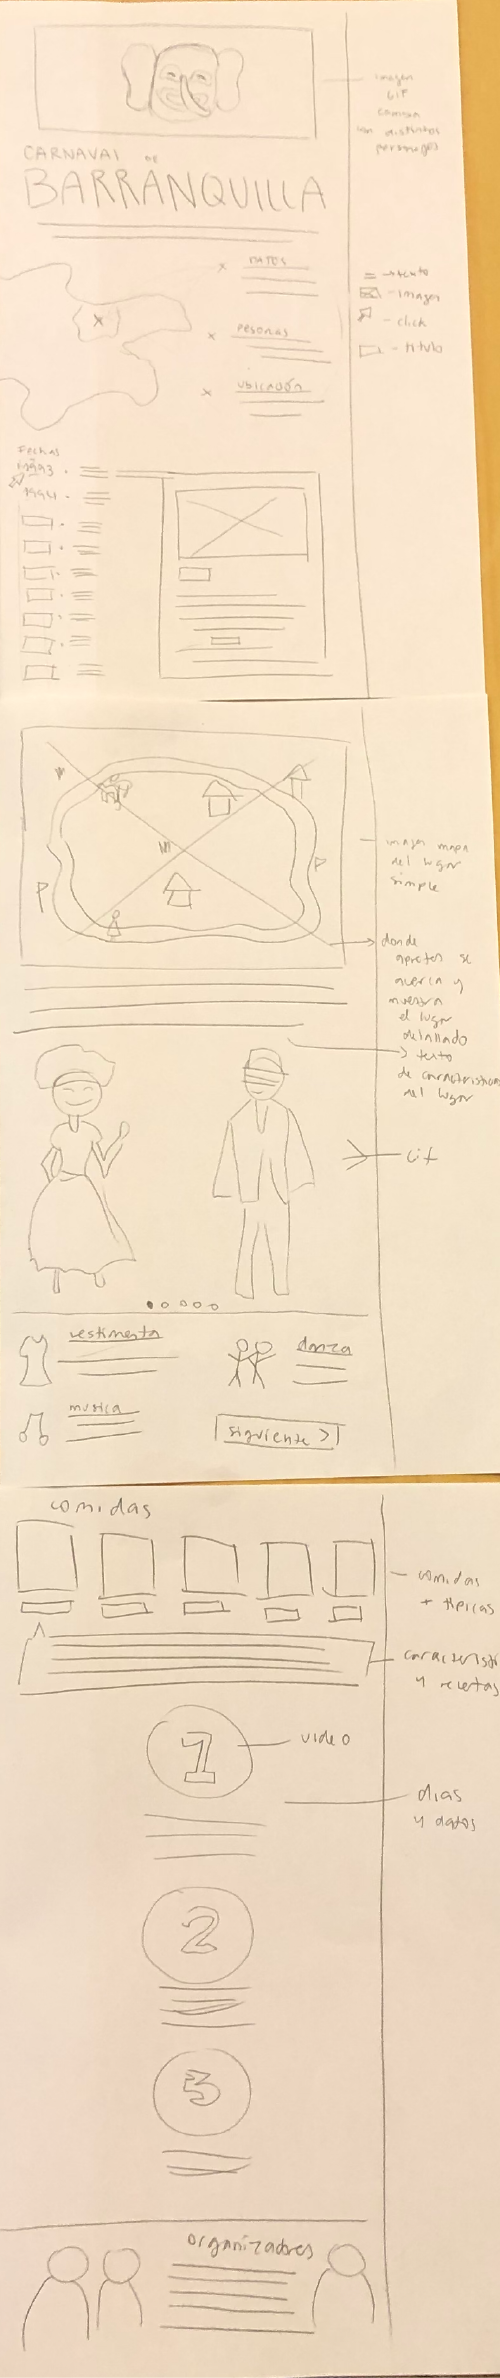 imagen
GIF
cambia
con distintos
personajes
CARNAVAL DE
BARRANQUILLA
DATOS
= - texto
- imagen
- click
- titulo
PERSONAS
UBICACIÓN
Fechas
1993
1994
P
P
imagen mapa
del lugar
simple
donde
apretas se
acerca y
muestra
el lugar
detallado
texto
de caracteristicas
del lugar
Gif
vestimenta
danza
musica
siguiente >
comidas
comidas
+ tipicas
1
video
y recetas
dias
y datos
2
3
organizadores